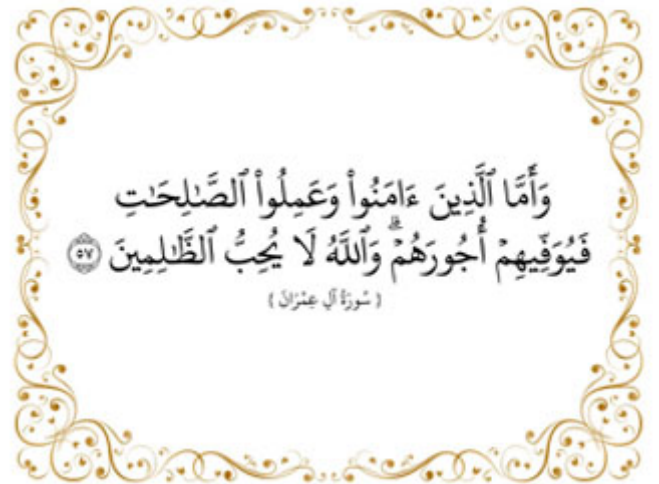 وَأَمَّا ٱلَّذِينَ ءَامَنُوا۟ وَعَمِلُوا۟ ٱلصَّـٰلِحَـٰتِ
فَيُوَفِّيهِمْ أُجُورَهُمْ ۗ وَٱللَّهُ لَا يُحِبُّ ٱلظَّـٰلِمِينَ ٥٧
( سُورَةُ آلِ عِمْرَانَ )